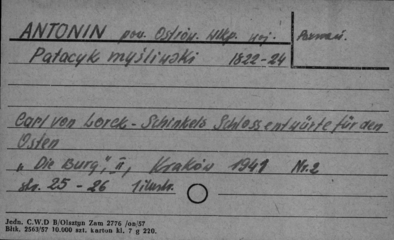 ANTONIN pow. Ostrów. Wlkp. woj. Poznań.
Pałacyk myśliwski 1822-24
Carl von Lorck - Schinkels Schlossentwürfe für den
Osten
„Die Burg", II, Kraków 1941 Nr. 2
str. 25 - 26 1 ilustr.
Jedn. C.W.D B/Olsztyn Zam 2776 /on/57
Bltk. 2563/57 10.000 szt. karton kl. 7 g 220.